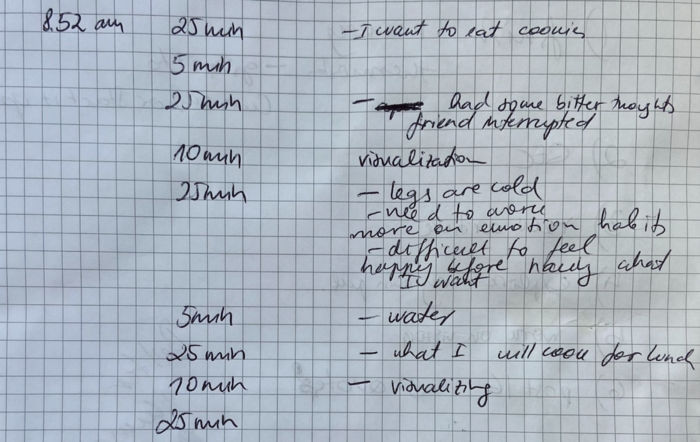 8.52 am 25 min - I want to eat cookies
5 min
25 min - had some bitter thoughts
friend interrupted
10 min visualization
25 min - legs are cold
- need to work
more on emotion habits
- difficult to feel
happy before having what
I want
5 min - water
25 min - what I will cook for lunch
10 min - visualizing
25 min